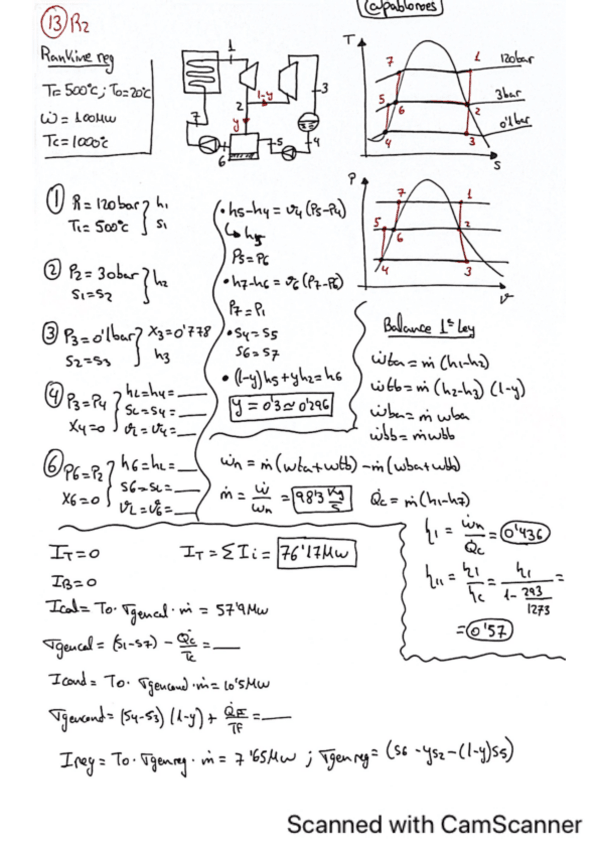 @pabloroes
13) R2
Rankine reg
T=500°C; To=20°C
Ẇ = 100MW
Tc=1000°C
1
2
1-y
y
3
4
5
6
7
T
7
1
120bar
5
6
2
3bar
4
3
0'1bar
s
P
7
1
5
6
2
4
3
v
① P1=120bar } h1
T1=500°C } s1
② P2=30bar } h2
s1=s2
③ P3=0'1bar } X3=0'778
s2=s3 } h3
④ P3=P4 } hL=h4=___
X4=0 } sL=s4=___
vL=v4=___
⑥ P6=P2 } h6=hL=___
X6=0 } s6=sL=___
vL=v6=___
• h5-h4 = v4 (P5-P4)
↳ h5
P5=P6
• h7-h6 = v6 (P7-P6)
P7=P1
• s4=s5
s6=s7
• (1-y)h5+yh2=h6
y = 0'3 ≃ 0'296
Balance 1ª Ley
ẇta = ṁ (h1-h2)
ẇtb = ṁ (h2-h3) (1-y)
ẇba = ṁ wba
ẇbb = ṁ wbb
ẇn = ṁ(wta+wtb) - ṁ(wba+wbb)
ṁ = ẇ/wn = 98'3 kg/s
Q̇c = ṁ(h1-h7)
ηI = ẇn/Q̇c = 0'436
ηII = ηI/ηc = ηI/(1- 293/1273) =
= 0'57
IT=0
IT = ΣIi = 76'17MW
IB=0
Ical= To · σgencal · ṁ = 57'9MW
σgencal = (s1-s7) - Q̇c/Tc = ___
Icond = To · σgencond · ṁ = 10'5MW
σgencond = (s4-s3) (1-y) + Q̇F/TF = ___
Ireg = To · σgenreg · ṁ = 7'65MW ; σgenreg = (s6 - ys2 - (1-y)s5)
Scanned with CamScanner